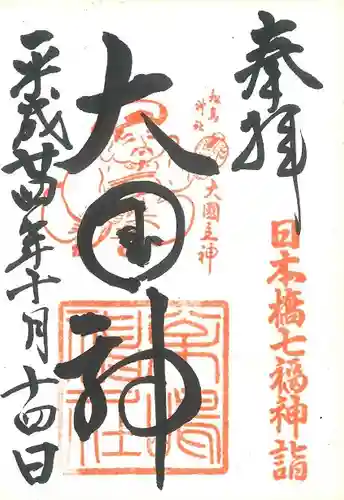 奉拝
日本橋七福神詣
松島神社
大國主神
大国神
松島神社
平成廿四年十月十四日